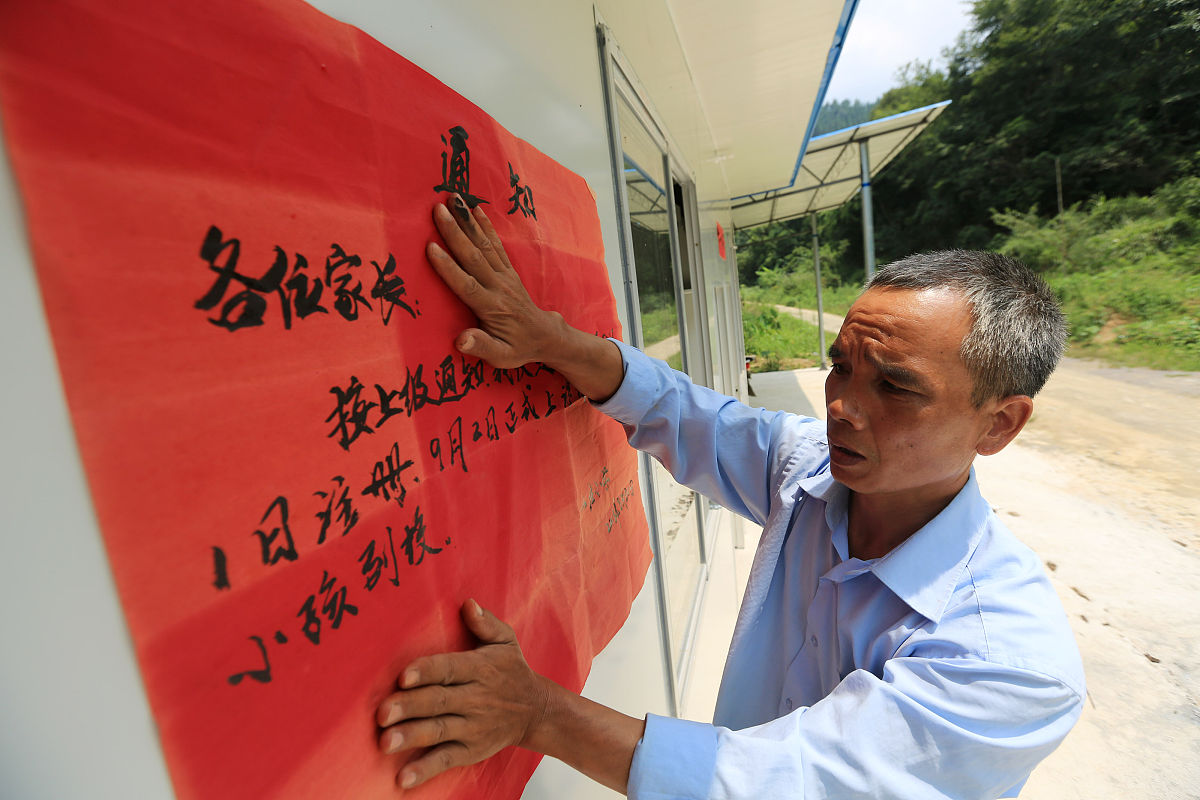 通知
各位家长:
按上级通知,我
1日注册,9月2日正式上
小孩到校。